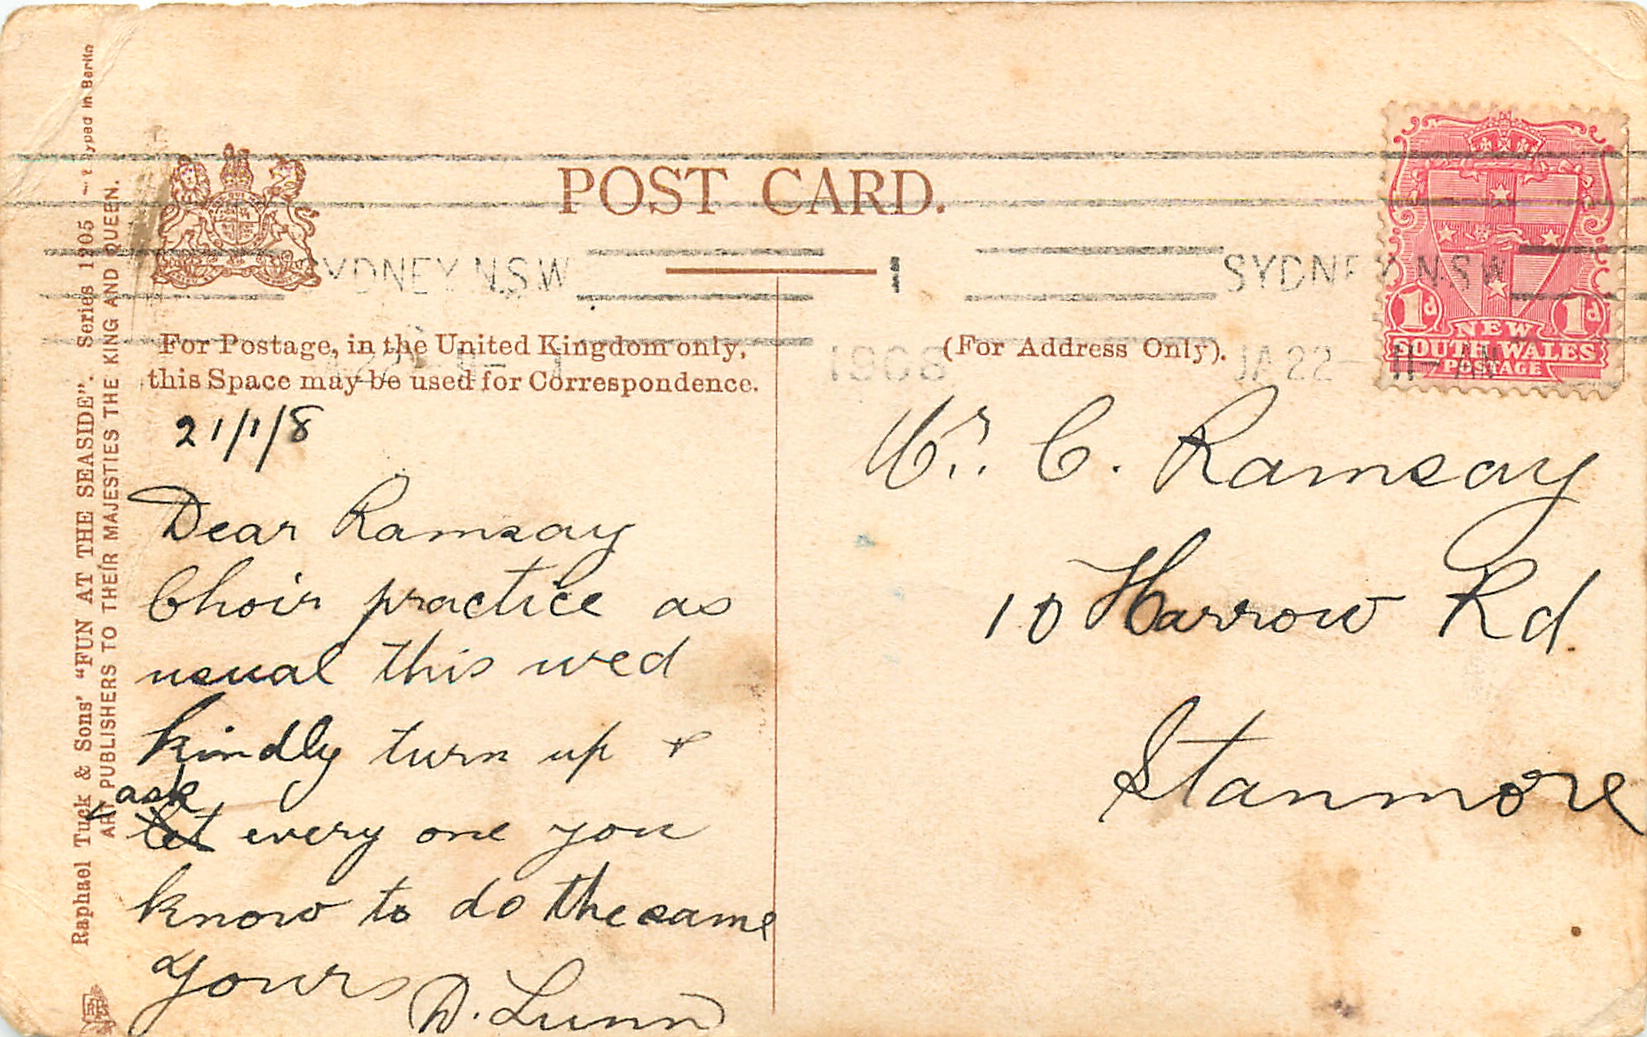 POST CARD.
SYDNEY N.S.W
1
SYDNEY N.S.W
1908
JA 22 11-AM
1d NEW 1d
SOUTH WALES
POSTAGE
For Postage, in the United Kingdom only,
this Space may be used for Correspondence.
(For Address Only).
21/1/8
Dear Ramsay
Choir practice as
usual this wed
kindly turn up &
ask
let every one you
know to do the same
Yours D. Lunn
Mr. C. Ramsay
10 Harrow Rd.
Stanmore
Raphael Tuck & Sons' "FUN AT THE SEASIDE". Series 1205 in Berlin
ART PUBLISHERS TO THEIR MAJESTIES THE KING AND QUEEN.